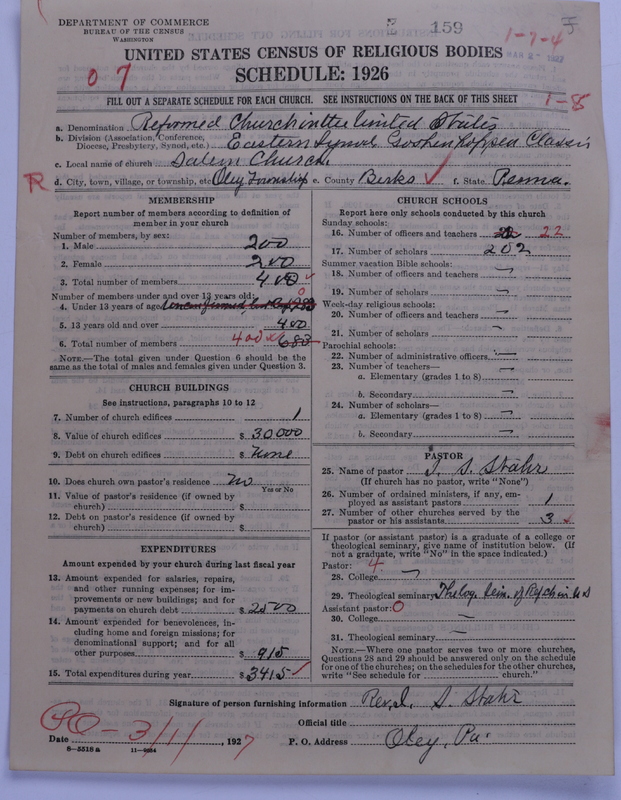 DEPARTMENT OF COMMERCE
BUREAU OF THE CENSUS
WASHINGTON
159
1-7-4
MAR 2 - 1927
UNITED STATES CENSUS OF RELIGIOUS BODIES
SCHEDULE: 1926
0 7
FILL OUT A SEPARATE SCHEDULE FOR EACH CHURCH. SEE INSTRUCTIONS ON THE BACK OF THIS SHEET
1-8
a. Denomination Reformed Church in the United States
b. Division (Association, Conference, Diocese, Presbytery, Synod, etc.) Eastern Synod Goshenhoppen Classis
c. Local name of church Salem Church.
R d. City, town, village, or township, etc Oley Township e. County Berks ✓ f. State Penna.
MEMBERSHIP
Report number of members according to definition of member in your church
Number of members, by sex:
1. Male 200
2. Female 200
3. Total number of members 400 ✓
Number of members under and over 13 years old:
4. Under 13 years of age 0
5. 13 years old and over 400
6. Total number of members 400 x 683
NOTE.—The total given under Question 6 should be the same as the total of males and females given under Question 3.
CHURCH BUILDINGS
See instructions, paragraphs 10 to 12
7. Number of church edifices 1
8. Value of church edifices $ 30000
9. Debt on church edifices $ None
10. Does church own pastor's residence No
Yes or No
11. Value of pastor's residence (if owned by church) $
12. Debt on pastor's residence (if owned by church) $
EXPENDITURES
Amount expended by your church during last fiscal year
13. Amount expended for salaries, repairs, and other running expenses; for improvements or new buildings; and for payments on church debt $ 2500
14. Amount expended for benevolences, including home and foreign missions; for denominational support; and for all other purposes $ 915
15. Total expenditures during year $ 3415 ✓
CHURCH SCHOOLS
Report here only schools conducted by this church
Sunday schools:
16. Number of officers and teachers 22 22
17. Number of scholars 202
Summer vacation Bible schools:
18. Number of officers and teachers —
19. Number of scholars —
Week-day religious schools:
20. Number of officers and teachers —
21. Number of scholars —
Parochial schools:
22. Number of administrative officers —
23. Number of teachers—
a. Elementary (grades 1 to 8) —
b. Secondary —
24. Number of scholars—
a. Elementary (grades 1 to 8) —
b. Secondary —
PASTOR
25. Name of pastor I. S. Stahr
(If church has no pastor, write "None")
26. Number of ordained ministers, if any, employed as assistant pastors 1
27. Number of other churches served by the pastor or his assistants 3 ✓
If pastor (or assistant pastor) is a graduate of a college or theological seminary, give name of institution below. (If not a graduate, write "No" in the space indicated.)
Pastor: 4
28. College —
29. Theological seminary Theolog. Sem. of Ref. Ch. in U S
Assistant pastor: 0
30. College —
31. Theological seminary —
NOTE.—Where one pastor serves two or more churches, Questions 28 and 29 should be answered only on the schedule for one of the churches; on the schedules for the other churches, write "See schedule for church."
Signature of person furnishing information Rev. I. S. Stahr
Official title
PO - 3/1/
Date , 1927 P. O. Address Oley, Pa.
8—5518a